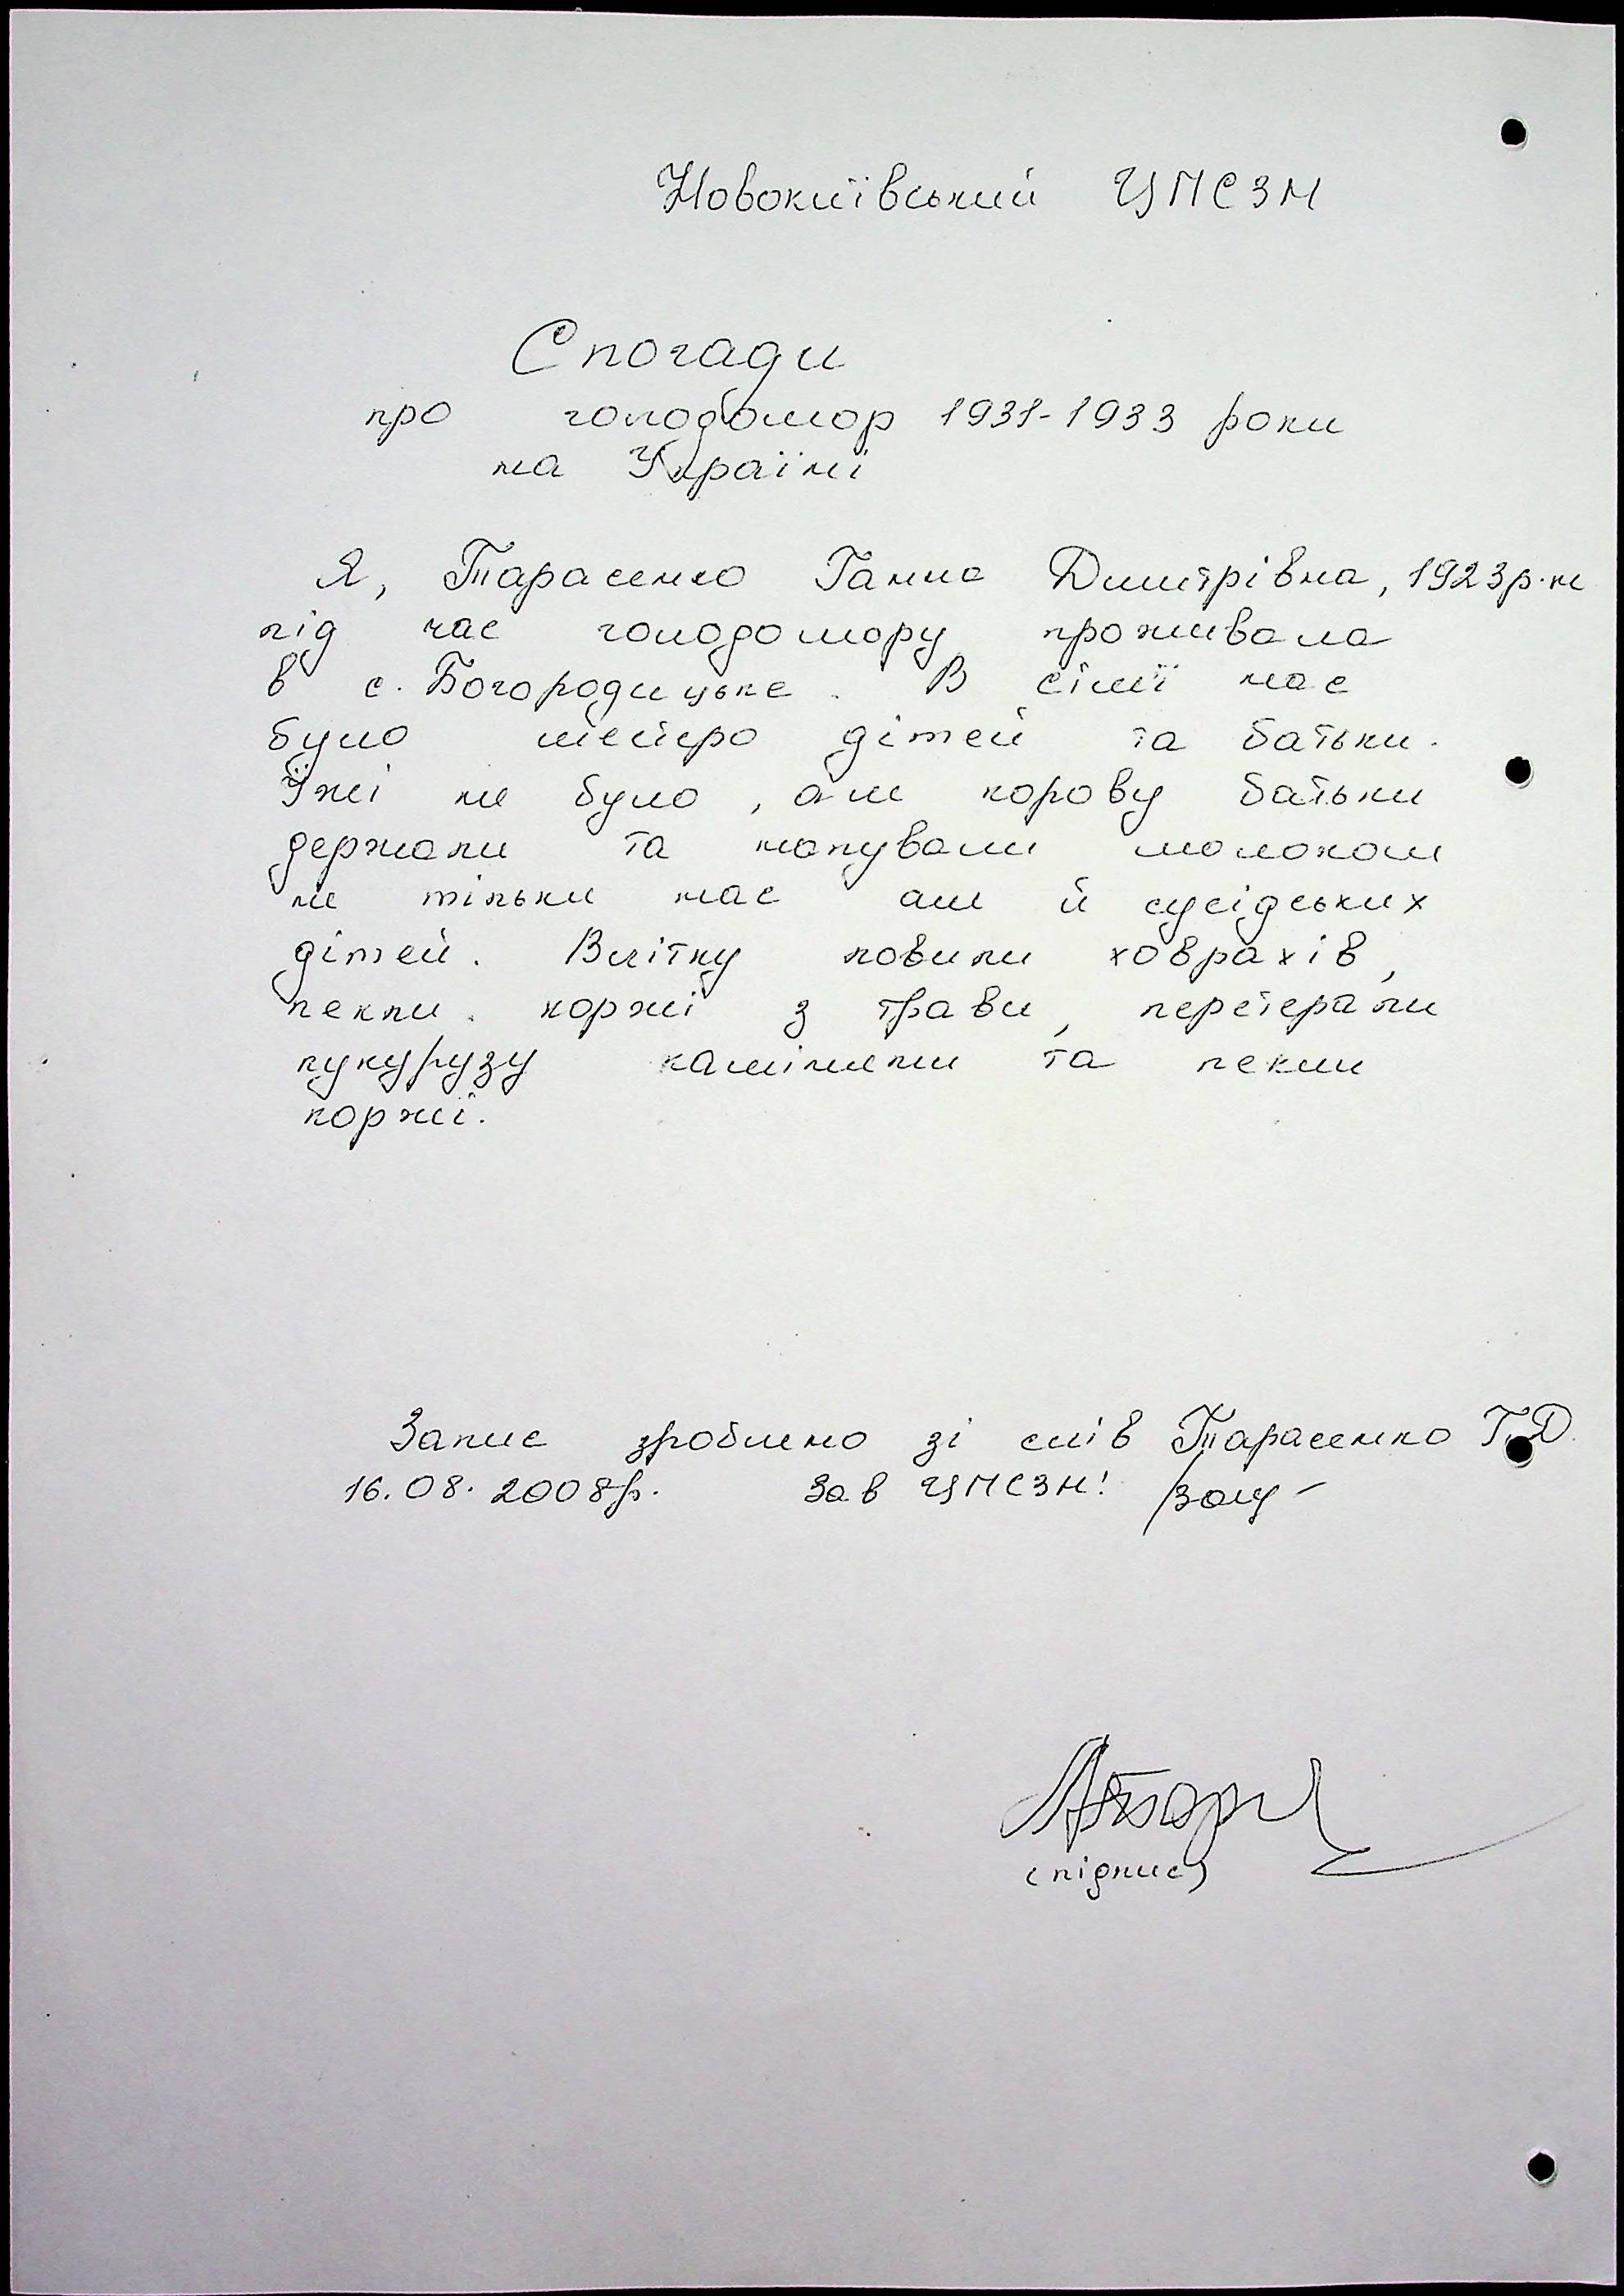 Новокиївський ЦПСЗН
Спогади
про голодомор 1931-1933 роки
на Україні
Я, Тарасенко Ганна Дмитрівна, 1923р.н
під час голодомору проживала
в с. Богородицьке. В сімї нас
було шестеро дітей та батьки.
Їжі не було, але корову батьки
держали та напували молоком
не тільки нас але й сусідських
дітей. Влітку ловили ховрахів,
пекли коржі з трави, перетерали
кукурузу камінням та пекли
коржі.
Запис зроблено зі слів Тарасенко Г.Д.
16.08.2008р. Зав ЦПСЗН:
(підпис)